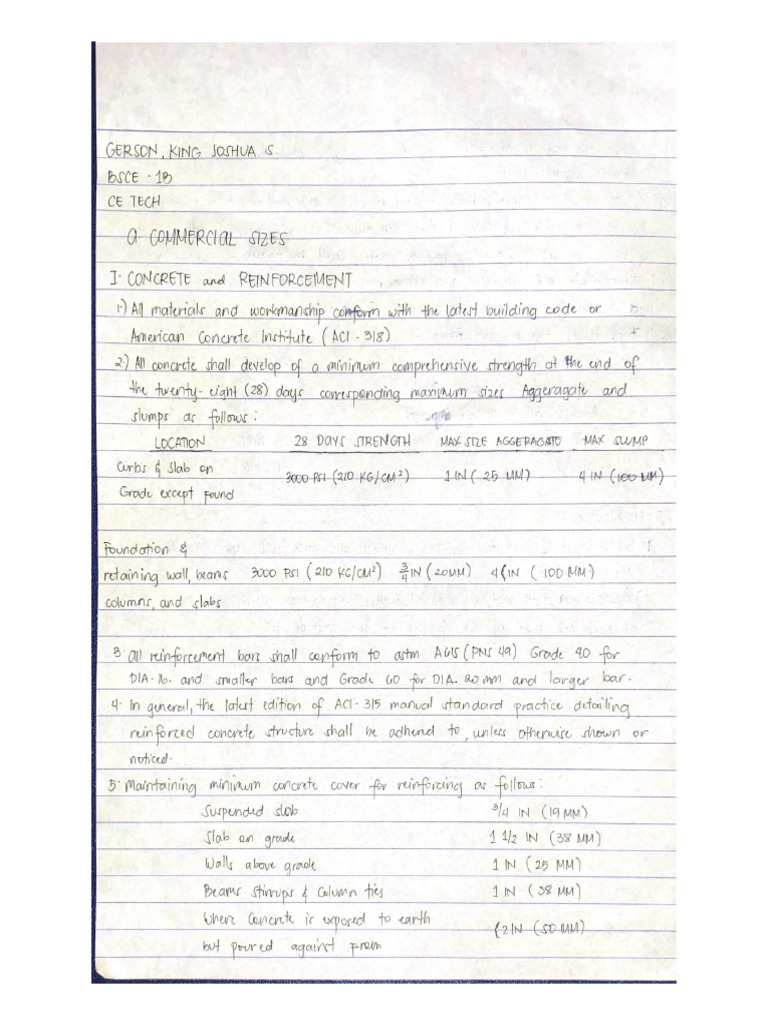 GERSON, KING JOSHUA S.
BSCE - 1B
CE TECH
A COMMERCIAL SIZES
I. CONCRETE and REINFORCEMENT
1.) All materials and workmanship conform with the latest building code or
American Concrete Institute (ACI - 318)
2.) All concrete shall develop of a minimum comprehensive strength at the end of
the twenty-eight (28) days corresponding maximum sizes Aggeragate and
slumps as follows:
LOCATION 28 DAYS STRENGTH MAX SIZE AGGERAGATE MAX SLUMP
Curbs & Slab on
3000 PSI (210 KG/CM²) 1 IN (25 MM) 4 IN (100 MM)
Grade except Found
Foundation &
retaining wall, beams 3000 PSI (210 KG/CM²) 3/4 IN (20MM) 4 IN (100 MM)
columns, and slabs
3. all reinforcement bars shall conform to astm AG15 (PNS 49) Grade 40 for
DIA. 16. and smaller bars and Grade 60 for DIA. 20 mm and larger bar.
4. In general, the latest edition of ACI - 315 manual standard practice detailing
reinforced concrete structure shall be adhend to, unless otherwise shown or
noticed.
5. Maintaining minimum concrete cover for reinforcing as follows:
Suspended slab 3/4 IN (19 MM)
Slab on grade 1 1/2 IN (38 MM)
Walls above grade 1 IN (25 MM)
Beams stirrups & Column ties 1 IN (38 MM)
Where Concrete is exposed to earth
(2 IN (50 MM)
but poured against From